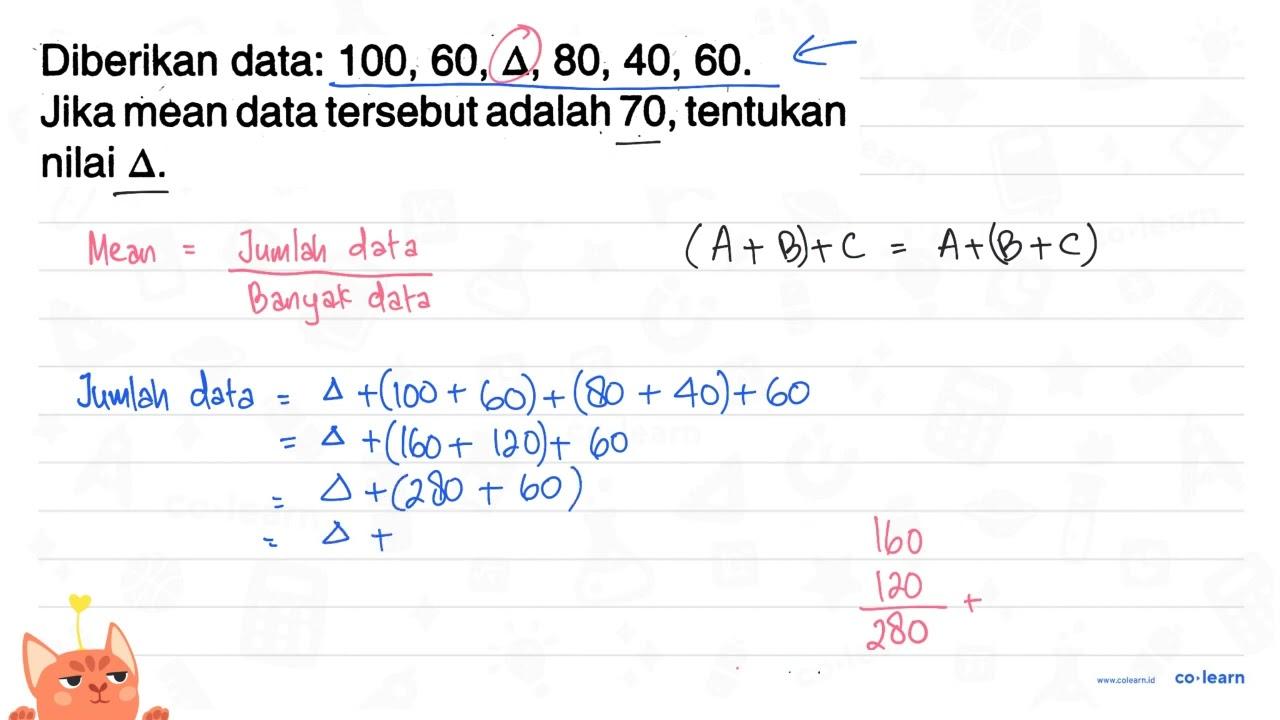 Diberikan data: 100, 60, Δ, 80, 40, 60.
Jika mean data tersebut adalah 70, tentukan
nilai Δ.
Mean = Jumlah data
Banyak data
(A + B) + C = A + (B + C)
Jumlah data = Δ + (100 + 60) + (80 + 40) + 60
= Δ + (160 + 120) + 60
= Δ + (280 + 60)
= Δ +
160
120 +
280
www.colearn.id co·learn